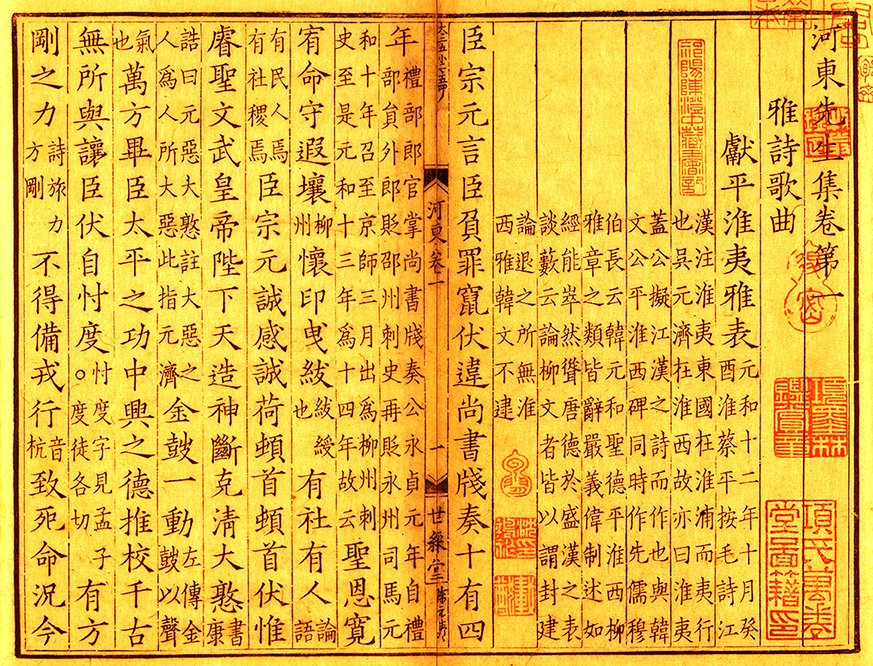 河東先生集卷第一
雅詩歌曲
獻平淮夷雅表元和十二年十月癸
酉淮蔡平按毛詩江
漢注淮夷東國在淮浦而夷行
也吳元濟在淮西故亦曰淮夷
蓋公擬江漢之詩而作也與韓
文公平淮西碑同時作先儒穆
伯長云韓元和聖德平淮西柳
雅章之類皆辭嚴義偉制述如
經能崒然聳唐德於盛漢之表
談藪云論柳文者皆以謂封建
論退之所無淮
西雅韓文不逮
臣宗元言臣負罪竄伏違尚書牋奏十有四
河東卷一 一 世綵堂
年禮部郎官掌尚書牋奏公永貞元年自禮
部員外郎貶邵州刺史再貶永州司馬元
和十年召至京師三月出爲柳州刺
史至是元和十三年爲十四年故云聖恩寬
宥命守遐壤柳州懷印曳紱紱綬也有社有人論語
有民人焉有社稷焉臣宗元誠感誠荷頓首頓首伏惟
睿聖文武皇帝陛下天造神斷克清大憝書康
誥曰元惡大憝註大惡之人爲人所大惡此指元濟金鼓一動左傳金鼓以聲
氣也萬方畢臣太平之功中興之德推校千古
無所與讓臣伏自忖度○忖度字見孟子度徒各切有方
剛之力詩旅力方剛不得備戎行音杭致死命況今
祁陽陳澄中藏書記
項墨林鑑賞章
項氏萬卷堂圖籍印